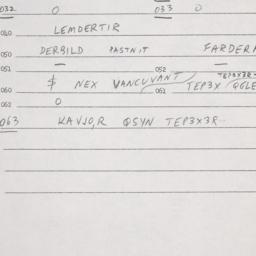 032 0 033 0
040 LEMDERTIR
050 DERBILD PASTNIT FARDERA
051 — 052 —
060 $ NEX VANCUVANT 061 TEP3X QGLE
TEP3X3R-
062 0
063 KAVJO,R QSYN TEP3X3R-